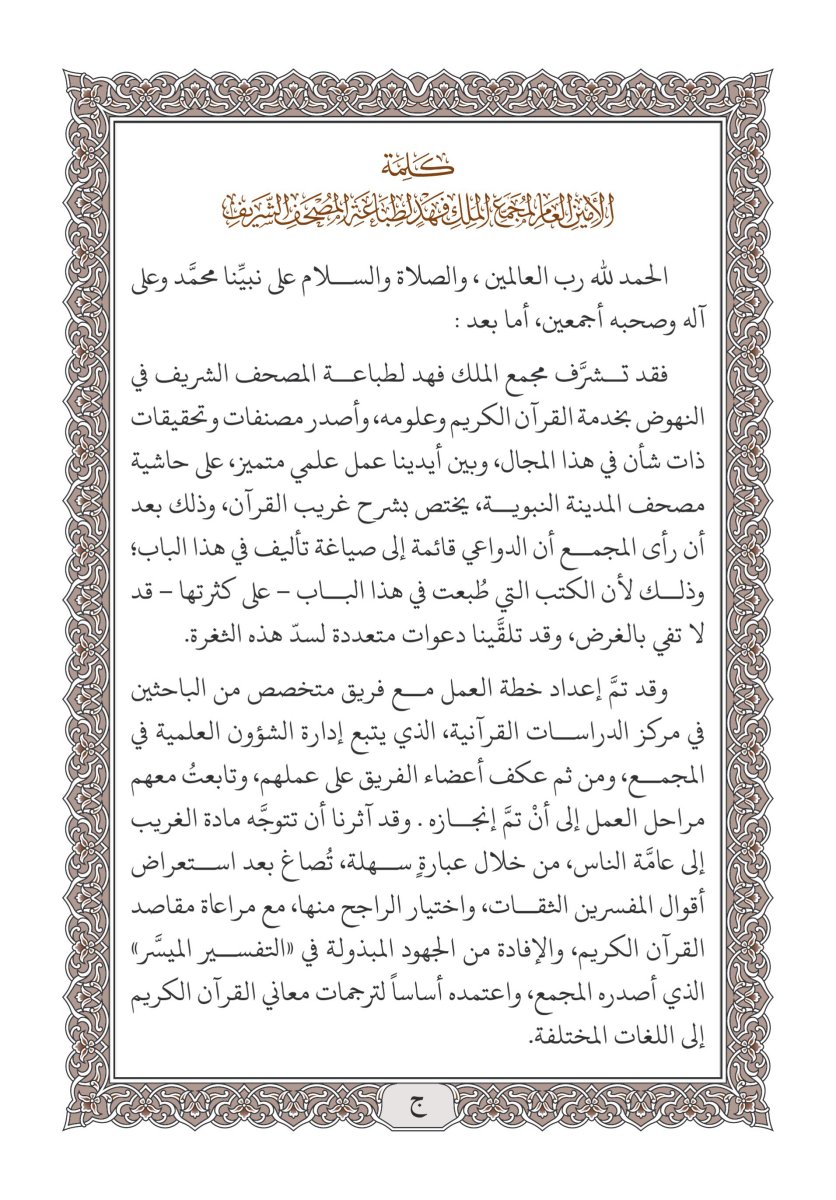 كَلِمَة
الأَمِينِ العَامِ لِمُجَمَّعِ المَلِك فَهْد لِطِبَاعَةِ المُصْحَفِ الشَّرِيفِ
الحمد لله رب العالمين ، والصلاة والسلام على نبيِّنا محمَّد وعلى
آله وصحبه أجمعين، أما بعد :
فقد تشرَّف مجمع الملك فهد لطباعة المصحف الشريف في
النهوض بخدمة القرآن الكريم وعلومه، وأصدر مصنفات وتحقيقات
ذات شأن في هذا المجال، وبين أيدينا عمل علمي متميز، على حاشية
مصحف المدينة النبوية، يختص بشرح غريب القرآن، وذلك بعد
أن رأى المجمع أن الدواعي قائمة إلى صياغة تأليف في هذا الباب؛
وذلك لأن الكتب التي طُبعت في هذا الباب – على كثرتها – قد
لا تفي بالغرض، وقد تلقَّينا دعوات متعددة لسدّ هذه الثغرة.
وقد تمَّ إعداد خطة العمل مع فريق متخصص من الباحثين
في مركز الدراسات القرآنية، الذي يتبع إدارة الشؤون العلمية في
المجمع، ومن ثم عكف أعضاء الفريق على عملهم، وتابعتُ معهم
مراحل العمل إلى أنْ تمَّ إنجازه . وقد آثرنا أن تتوجَّه مادة الغريب
إلى عامَّة الناس، من خلال عبارةٍ سهلة، تُصاغ بعد استعراض
أقوال المفسرين الثقات، واختيار الراجح منها، مع مراعاة مقاصد
القرآن الكريم، والإفادة من الجهود المبذولة في «التفسير الميسَّر»
الذي أصدره المجمع، واعتمده أساساً لترجمات معاني القرآن الكريم
إلى اللغات المختلفة.
ج